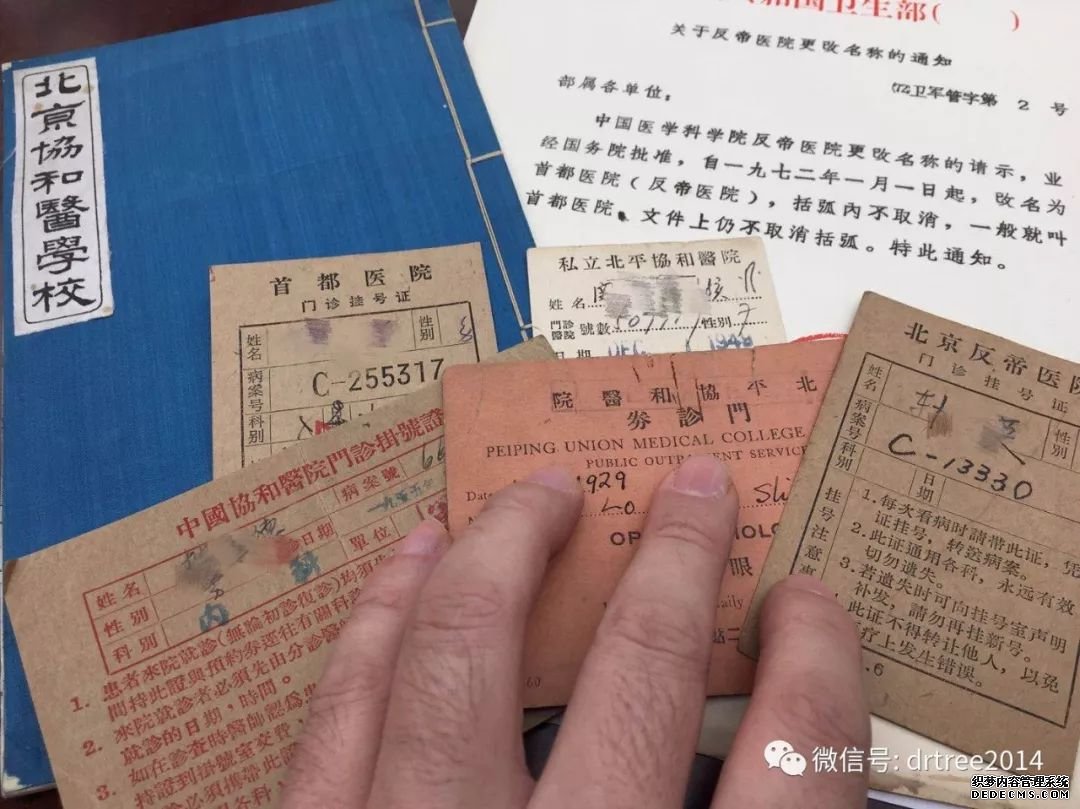 北京協和醫學校
国卫生部( )
关于反帝医院更改名称的通知
(72)卫军管字第 2 号
部属各单位:
中国医学科学院反帝医院更改名称的请示，业
经国务院批准，自一九七二年一月一日起，改名为
首都医院（反帝医院），括弧内不取消，一般就叫
首都医院。文件上仍不取消括弧。特此通知。
首都医院
门诊挂号证
姓名
性别
病案号
C-255317
科别
私立北平協和醫院
姓名
門診
醫院
號數
性别
日期 DEC 1948
院醫和協平北
券診門
PEIPING UNION MEDICAL COLLEGE
PUBLIC OUTPATIENT SERVICE
Date 1929
眼
60
北京反帝医院
门诊挂号证
姓名
性别
病案号
C-13330
科别
日期
挂号注意事
1.每次看病时請带此证，凭
证挂号，转送病案。
2.此证通用各科，永远有效
切勿遗失。
3.若遗失时可向挂号室声明
补发，請勿再挂新号。
此证不得转让他人，以免
疗上发生错误。
中國協和醫院門診掛號證
病案號
姓名
日期
性别
男
單位
科别
内
1. 患者來院就診(無論初診復診)均須先
間持此證與預約券逕往有關科診
2. 來院就診者必須先由分診醫
就診的日期，時間。
3. 如在診查時醫師認為
持證到掛號室交費
微信号: drtree2014
织梦内容管理系统
DEDECMS.COM